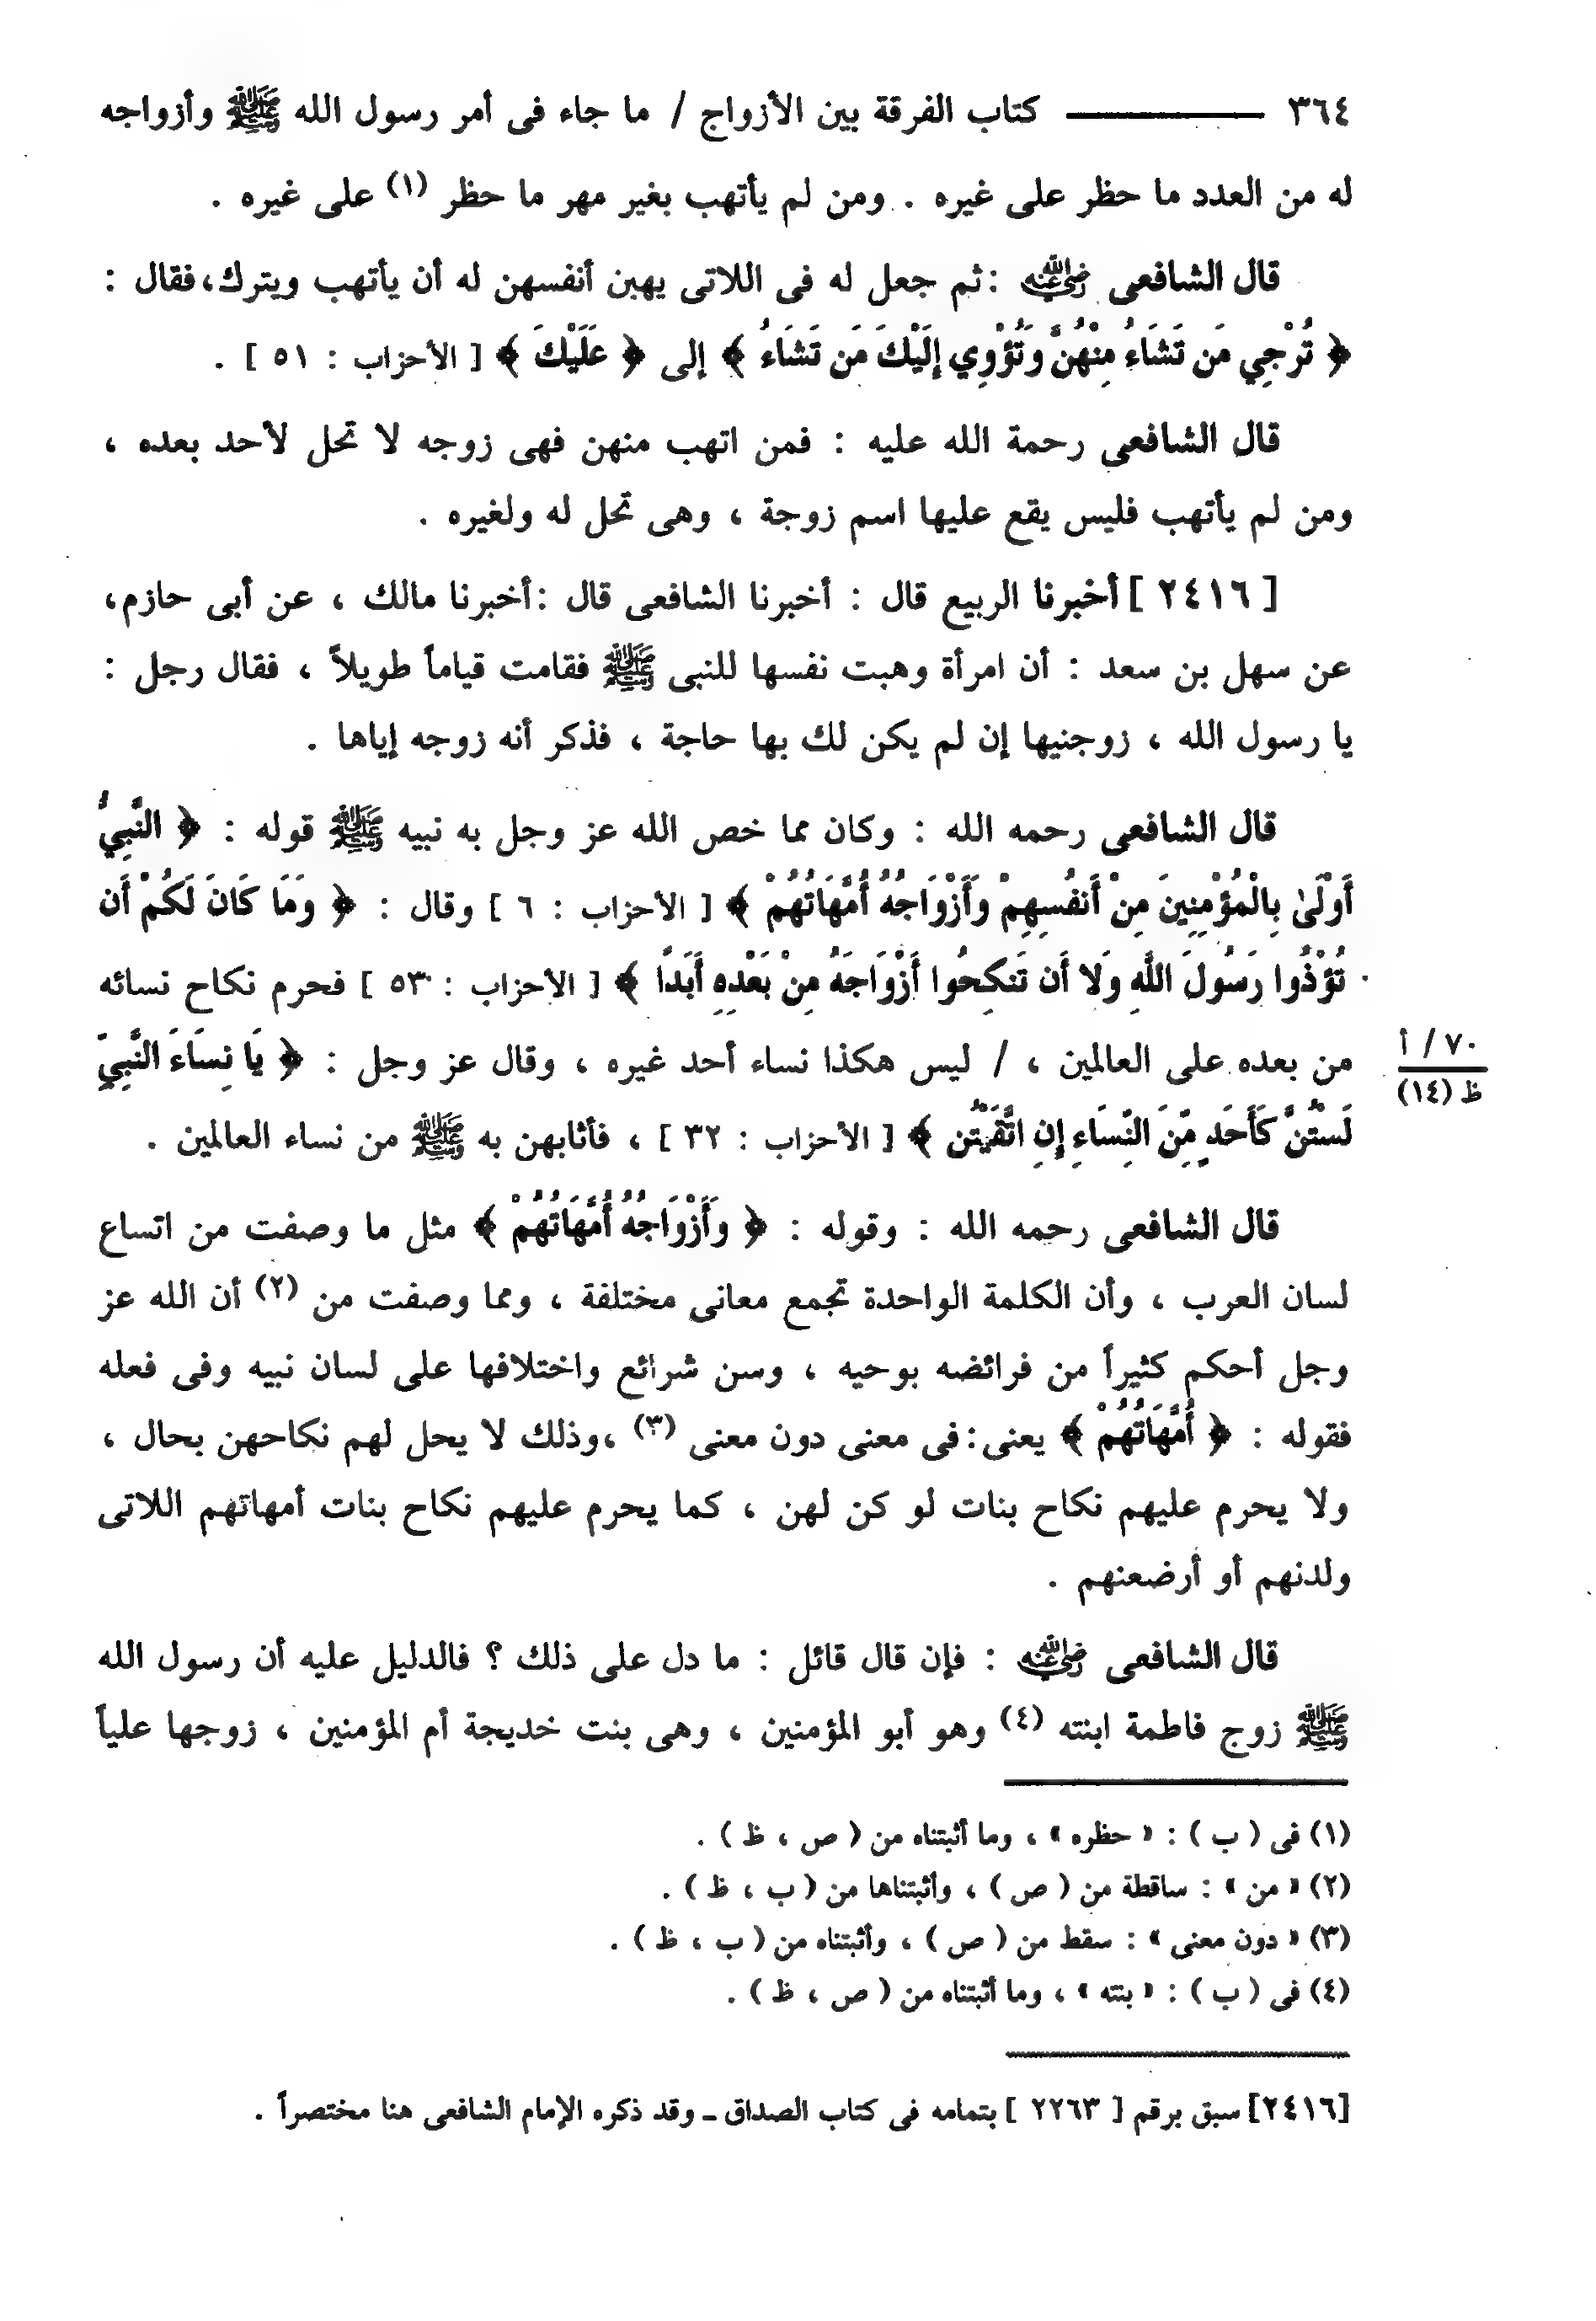 ٣٦٤ كتاب الفرقة بين الأزواج / ما جاء فى أمر رسول الله ﷺ وأزواجه
له من العدد ما حظر على غيره . ومن لم يأتهب بغير مهر ما حظر (١) على غيره .
قال الشافعى رضي الله عنه : ثم جعل له فى اللاتى يهبن أنفسهن له أن يأتهب ويترك، فقال :
﴿ تُرْجِي مَن تَشَاءُ مِنْهُنَّ وَتُؤْوِي إِلَيْكَ مَن تَشَاءُ ﴾ إلى ﴿ عَلَيْكَ ﴾ [ الأحزاب : ٥١ ] .
قال الشافعى رحمة الله عليه : فمن اتهب منهن فهى زوجه لا تحل لأحد بعده ،
ومن لم يأتهب فليس يقع عليها اسم زوجة ، وهى تحل له ولغيره .
[ ٢٤١٦ ] أخبرنا الربيع قال : أخبرنا الشافعى قال : أخبرنا مالك ، عن أبى حازم،
عن سهل بن سعد : أن امرأة وهبت نفسها للنبى ﷺ فقامت قياماً طويلاً ، فقال رجل :
يا رسول الله ، زوجنيها إن لم يكن لك بها حاجة ، فذكر أنه زوجه إياها .
قال الشافعى رحمه الله : وكان مما خص الله عز وجل به نبيه ﷺ قوله : ﴿ النَّبِيُّ
أَوْلَىٰ بِالْمُؤْمِنِينَ مِنْ أَنفُسِهِمْ وَأَزْوَاجُهُ أُمَّهَاتُهُمْ ﴾ [ الأحزاب : ٦ ] وقال : ﴿ وَمَا كَانَ لَكُمْ أَن
تُؤْذُوا رَسُولَ اللَّهِ وَلا أَن تَنكِحُوا أَزْوَاجَهُ مِنْ بَعْدِهِ أَبَدًا ﴾ [ الأحزاب : ٥٣ ] فحرم نكاح نسائه
من بعده على العالمين ، / ليس هكذا نساء أحد غيره ، وقال عز وجل : ﴿ يَا نِسَاءَ النَّبِيِّ
٧٠ / أ
ظ (١٤)
لَسْتُنَّ كَأَحَدٍ مِّنَ النِّسَاءِ إِنِ اتَّقَيْتُنَّ ﴾ [ الأحزاب : ٣٢ ] ، فأثابهن به ﷺ من نساء العالمين .
قال الشافعى رحمه الله : وقوله : ﴿ وَأَزْوَاجُهُ أُمَّهَاتُهُمْ ﴾ مثل ما وصفت من اتساع
لسان العرب ، وأن الكلمة الواحدة تجمع معانى مختلفة ، ومما وصفت من (٢) أن الله عز
وجل أحكم كثيراً من فرائضه بوحيه ، وسن شرائع واختلافها على لسان نبيه وفى فعله
فقوله : ﴿ أُمَّهَاتُهُمْ ﴾ يعنى: فى معنى دون معنى (٣) ،وذلك لا يحل لهم نكاحهن بحال ،
ولا يحرم عليهم نكاح بنات لو كن لهن ، كما يحرم عليهم نكاح بنات أمهاتهم اللاتى
ولدنهم أو أرضعنهم .
قال الشافعى رضي الله عنه : فإن قال قائل : ما دل على ذلك ؟ فالدليل عليه أن رسول الله
ﷺ زوج فاطمة ابنته (٤) وهو أبو المؤمنين ، وهى بنت خديجة أم المؤمنين ، زوجها علياً
(١) فى ( ب ) : « حظره » ، وما أثبتناه من ( ص ، ظ ) .
(٢) « من » : ساقطة من ( ص ) ، وأثبتناها من ( ب ، ظ ) .
(٣) « دون معنى » : سقط من ( ص ) ، وأثبتناه من ( ب ، ظ ) .
(٤) فى ( ب ) : « بنته » ، وما أثبتناه من ( ص ، ظ ) .
[٢٤١٦] سبق برقم [ ٢٢٦٣ ] بتمامه فى كتاب الصداق ـ وقد ذكره الإمام الشافعى هنا مختصراً .